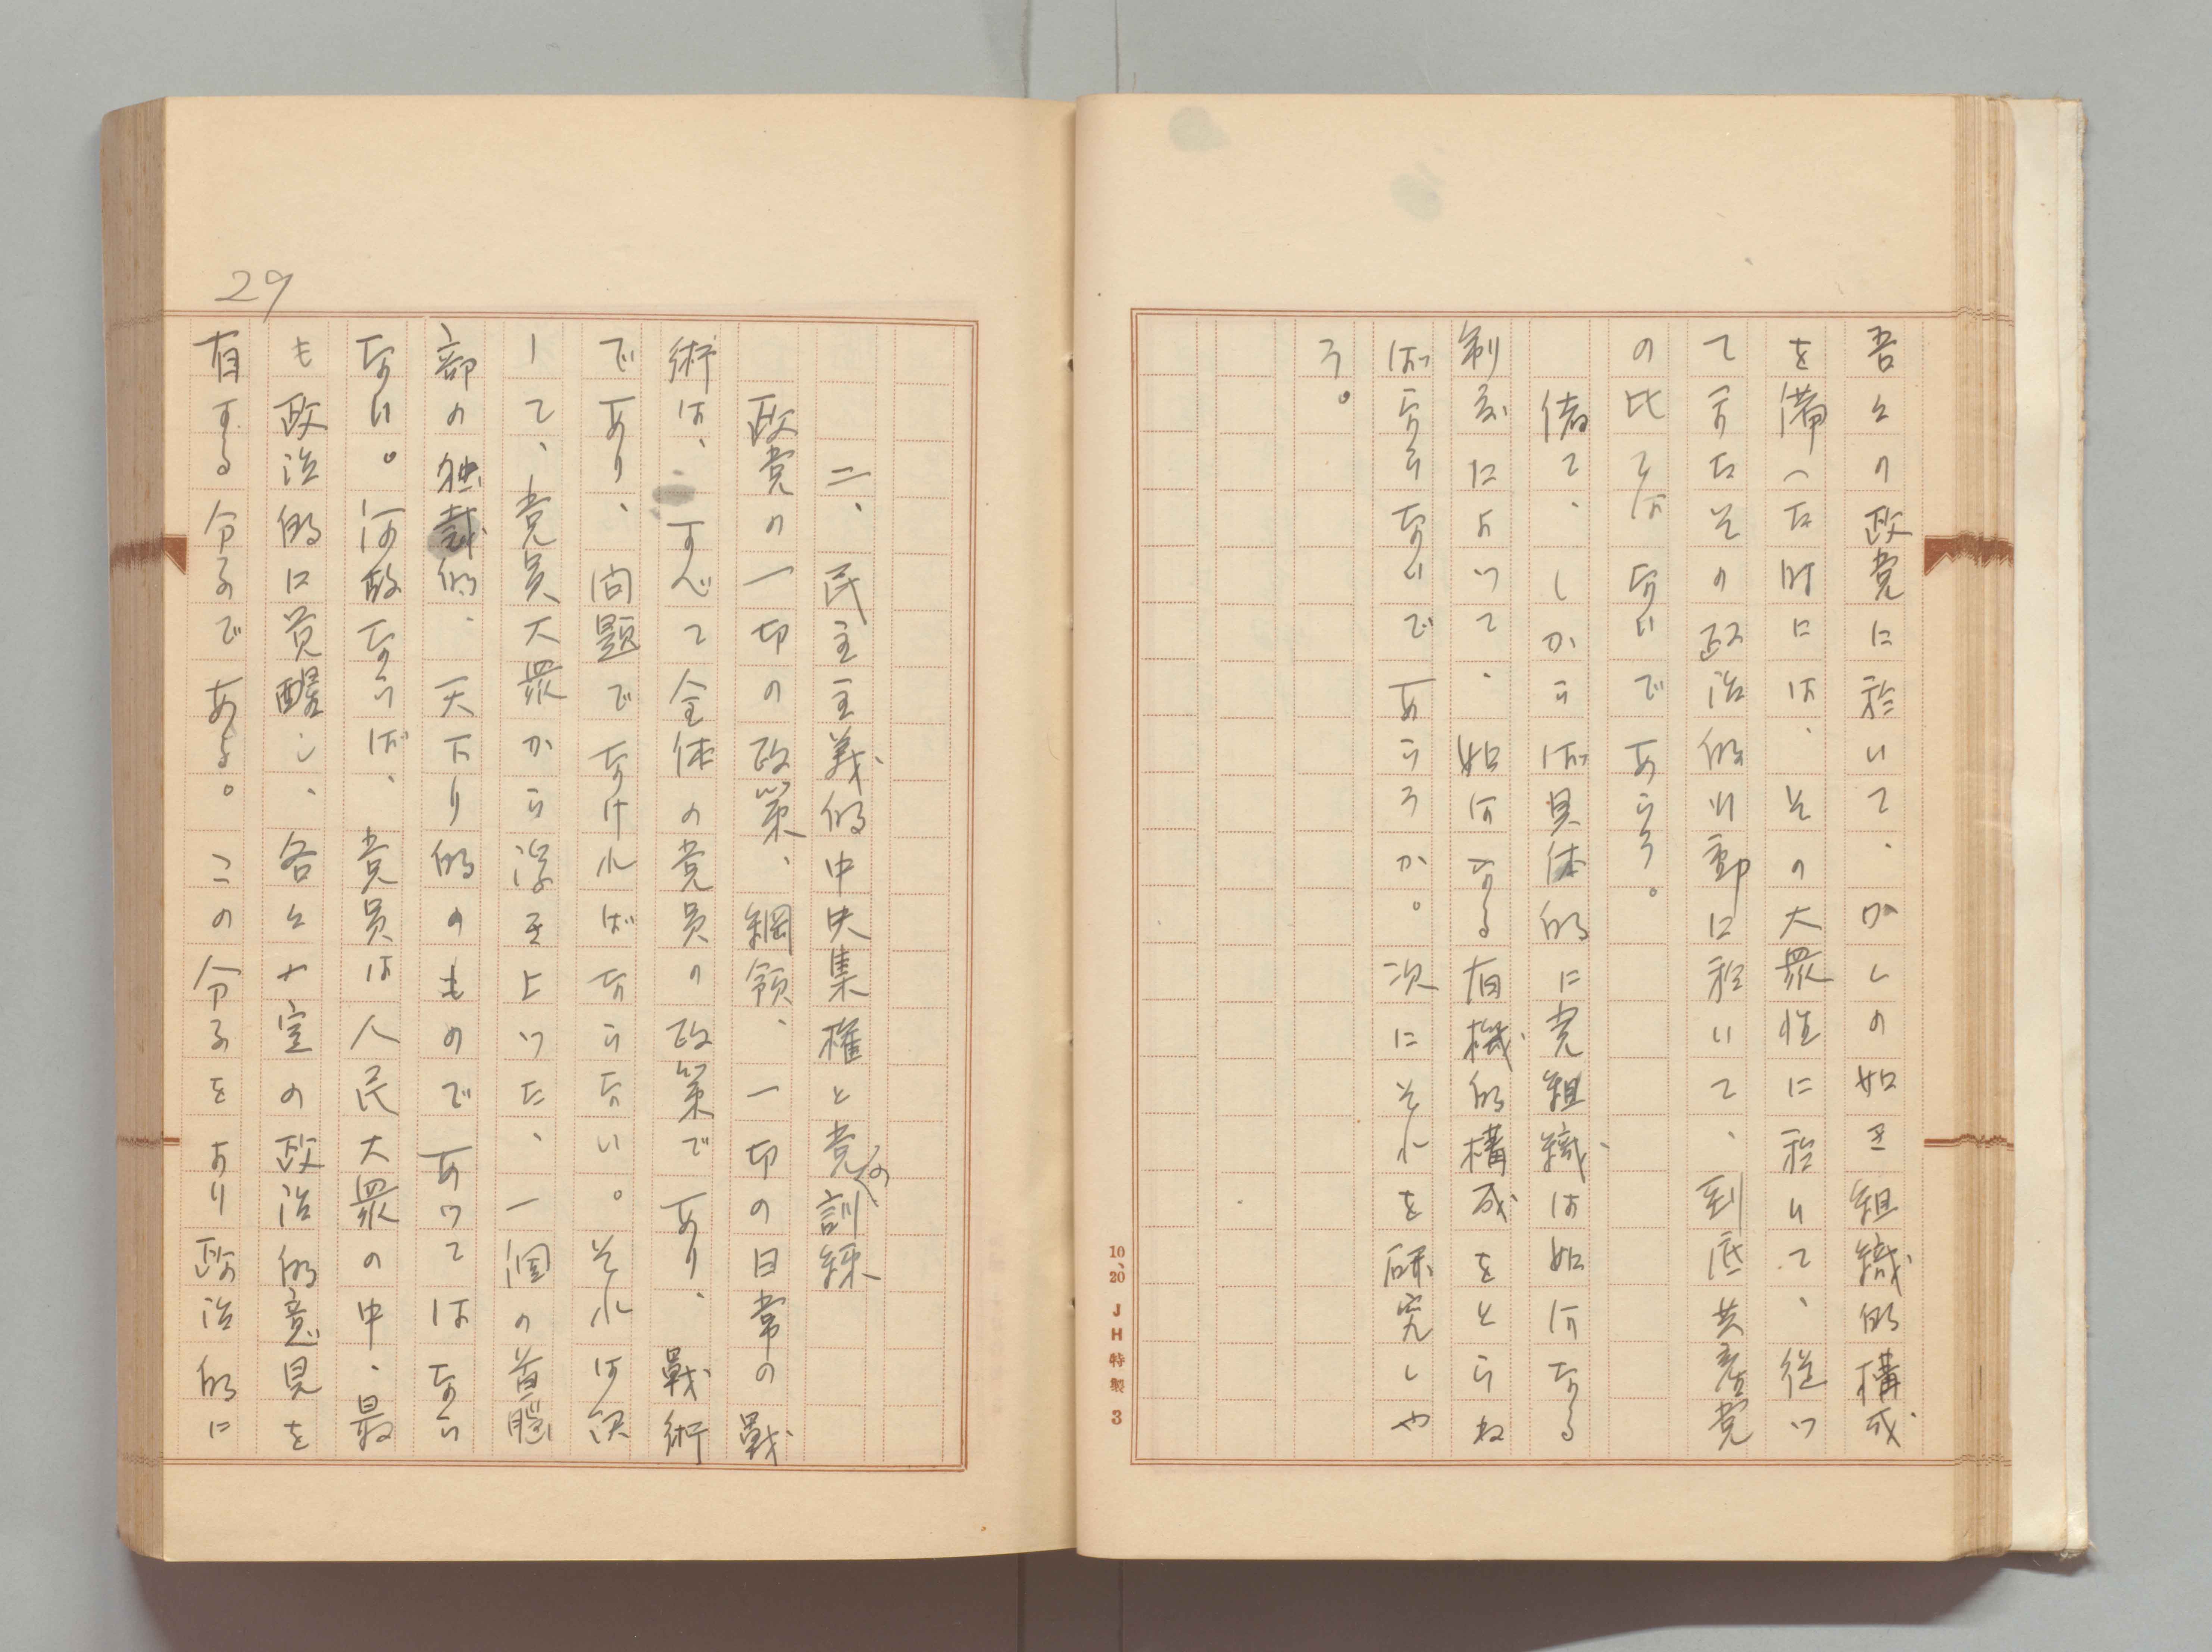 吾々の政党に於いて、かくの如き組織的構成
を備へた時には、その大衆性に於いて、従つ
て亦たその政治的活動に於いて、到底共産党
の比では ないであらう。
偖て、しからば具体的に党組織は如何なる
制度によつて、如何なる有機的構成をとらね
ばならないであらうか。次にそれを研究しや
う。
10、20 JH特製 3
29
二、民主主義的中央集権と党の訓練
政党の一切の政策、綱領、一切の日常の戦
術は、すべて全体の党員の政策であり、戦術
であり、問題でなければならない。それは決
して、党員大衆から浮き上つた、一個の首脳
部の独裁的、天下り的のものであつてはなら
ない。何故ならば、党員は人民大衆の中、最
も政治的に覚醒し、各々ヤ定の政治的意見を
有する分子である。この分子をあり政治的に